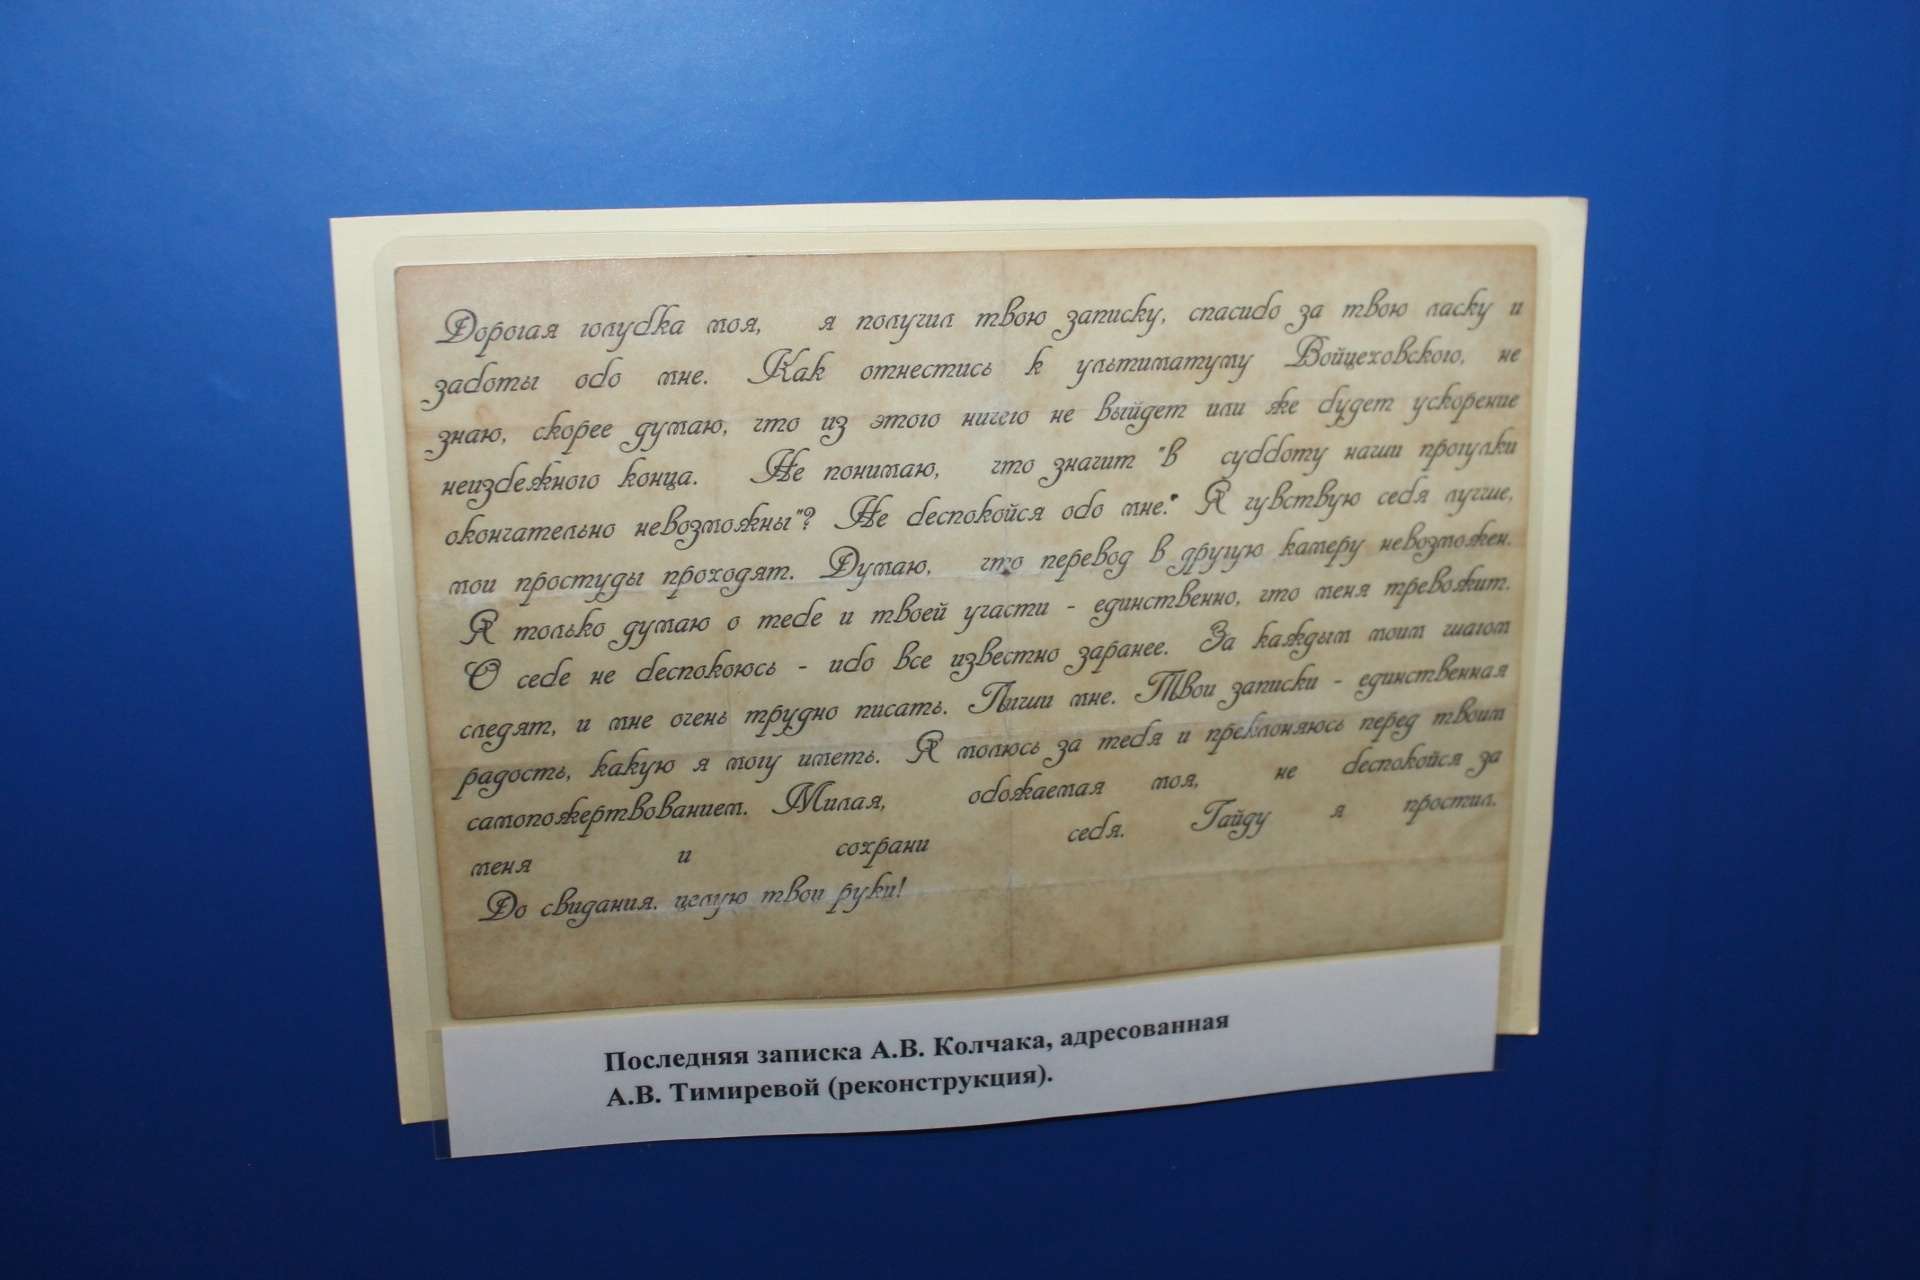 Дорогая голубка моя, я получил твою записку, спасибо за твою ласку и
заботы обо мне. Как отнестись к ультиматуму Войцеховского, не
знаю, скорее думаю, что из этого ничего не выйдет или же будет ускорение
неизбежного конца. Не понимаю, что значит "в субботу наши прогулки
окончательно невозможны"? Не беспокойся обо мне." Я чувствую себя лучше,
мои простуды проходят. Думаю, что перевод в другую камеру невозможен.
Я только думаю о тебе и твоей участи - единственно, что меня тревожит.
О себе не беспокоюсь - ибо все известно заранее. За каждым моим шагом
следят, и мне очень трудно писать. Пиши мне. Твои записки - единственная
радость, какую я могу иметь. Я молюсь за тебя и преклоняюсь перед твоим
самопожертвованием. Милая, обожаемая моя, не беспокойся за
меня и сохрани себя. Гайду я простил.
До свидания, целую твои руки!
Последняя записка А.В. Колчака, адресованная
А.В. Тимиревой (реконструкция).